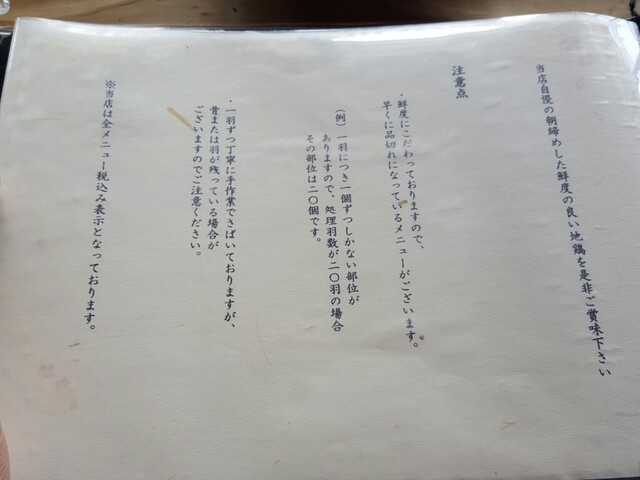 当店自慢の朝締めした鮮度の良い地鶏を是非ご賞味下さい
注意点
・鮮度にこだわっておりますので、
早くに品切れになっているメニューがございます。
（例）一羽につき一個ずつしかない部位が
ありますので、処理羽数が二〇羽の場合
その部位は二〇個です。
・一羽ずつ丁寧に手作業でさばいておりますが、
骨または羽が残っている場合が
ございますのでご注意ください。
※当店は全メニュー税込み表示となっております。